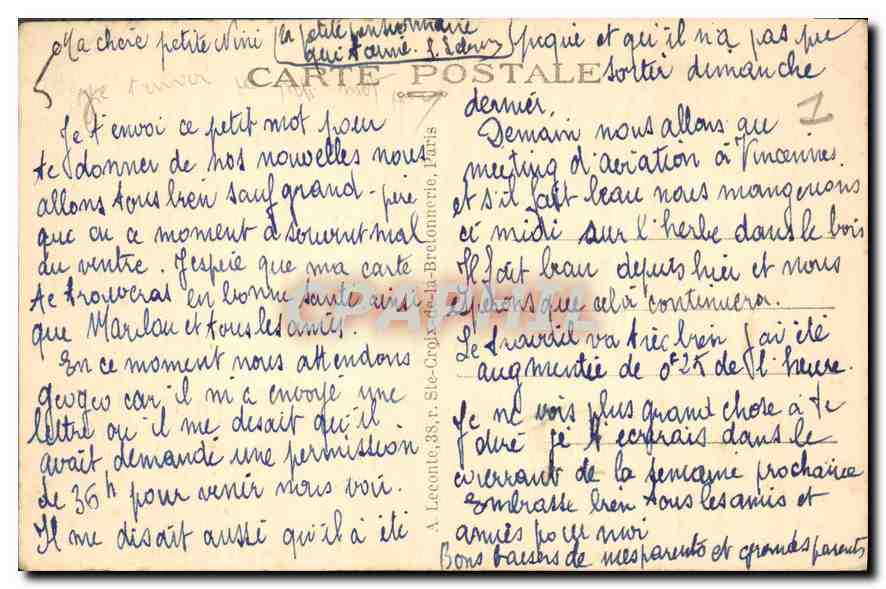 Ma chère petite Nini
la petite pensionnaire
qui t'aime.
CARTE POSTALE
Je t'envoi ce petit mot pour
te donner de nos nouvelles nous
allons tous bien sauf grand-père
que en ce moment a souvent mal
au ventre. J'espère que ma carte
te trouveras en bonne santé ainsi
que Marilou et tous les amis.
En ce moment nous attendons
geogeo car il m'a envoyé une
lettre ou il me disait qu'il
avait demandé une permission
de 36h pour venir nous voir.
Il me disait aussi qu'il à été
A. Leconte, 38, r. Ste-Croix-de-la-Bretonnerie, Paris
piqué et qu'il n'a pas pu
sortir dimanche
dernier.
1
Demain nous allons au
meeting d'aviation à Vincennes.
et s'il fait beau nous mangerons
ce midi sur l'herbe dans le bois
Il fait beau depuis hier et nous
espérons que celà continuera.
Le travail va très bien j'ai été
augmentée de 0f25 de l'heure.
Je ne vois plus grand chose à te
dire je t'écrirais dans le
courrant de la semaine prochaine
Embrasse bien tous les amis et
amies pour moi
Bons baisers de mes parents et grands parents
CPAPHIL